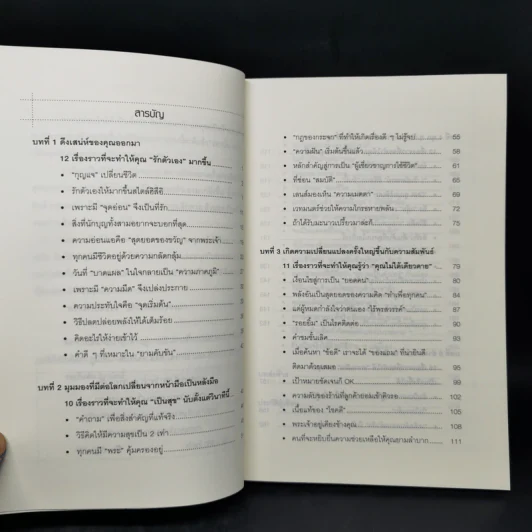 สารบัญ
บทที่ 1 ดึงเสน่ห์ของคุณออกมา
12 เรื่องราวที่จะทำให้คุณ "รักตัวเอง" มากขึ้น
• "กุญแจ" เปลี่ยนชีวิต
• รักตัวเองให้มากขึ้นสไตล์ฮิสึอิ
• เพราะมี "จุดอ่อน" จึงเป็นที่รัก
• สิ่งที่นักบุญทั้งสามอยากจะบอกที่สุด
• ความอ่อนแอคือ "สุดยอดของขวัญ" จากพระเจ้า
• ทุกคนมีชีวิตอยู่ด้วยความกลัดกลุ้ม
• วันที่ "บาดแผล" ในใจกลายเป็น "ความภาคภูมิ"
• เพราะมี "ความมืด" จึงเปล่งประกาย
• ความประทับใจคือ "จุดเริ่มต้น"
• วิธีปลดปล่อยพลังให้ได้เต็มร้อย
• คิดอะไรให้ง่ายเข้าไว้
• คำดี ๆ ที่เหมาะใน "ยามคับขัน"
บทที่ 2 มุมมองที่มีต่อโลกเปลี่ยนจากหน้ามือเป็นหลังมือ
10 เรื่องราวที่จะทำให้คุณ "เป็นสุข" นับตั้งแต่วินาทีนี้
• "คำถาม" เพื่อสิ่งสำคัญที่แท้จริง
• วิธีคิดให้มีความสุขเป็น 2 เท่า
• ทุกคนมี "พระ" คุ้มครองอยู่
• "กฎของกระจก" ที่ทำให้เกิดเรื่องดี ๆ ไม่รู้จบ 55
• "ความฝัน" เริ่มต้นขึ้นแล้ว 58
• หลักสำคัญสู่การเป็น "ผู้เชี่ยวชาญการใช้ชีวิต" 61
• ที่ซ่อน "สมบัติ" 65
• เลนส์มองเห็น "ความเมตตา" 69
• เวทมนตร์ช่วยให้ความโกรธหายพลัน 72
• ถ้าได้รับมะนาวเปรี้ยวมาล่ะก็ 75
บทที่ 3 เกิดความเปลี่ยนแปลงครั้งใหญ่ขึ้นกับความสัมพันธ์
11 เรื่องราวที่จะทำให้คุณรู้ว่า "คุณไม่ได้เดียวดาย" 79
• เงื่อนไขสู่การเป็น "ยอดคน" 80
• พลังอันเป็นสุดยอดของความคิด "ทำเพื่อทุกคน" 83
• แต่ผู้หมดกำลังใจว่าตนเอง "ไร้พรสวรรค์" 87
• "รอยยิ้ม" เป็นโรคติดต่อ 90
• คำชมชั้นเลิศ 93
• เมื่อค้นหา "ข้อดี" เราจะได้ "ของแถม" ที่น่ายินดี
ติดมาด้วยเสมอ 95
• เป้าหมายชัดเจนก็ OK 98
• ความลับของร้านที่ลูกค้ายอมเข้าคิวรอ 102
• เนื้อแท้ของ "โชคดี" 105
• พระเจ้าอยู่เคียงข้างคุณ 108
• คนที่จะหยิบยื่นความช่วยเหลือให้คุณยามลำบาก 111